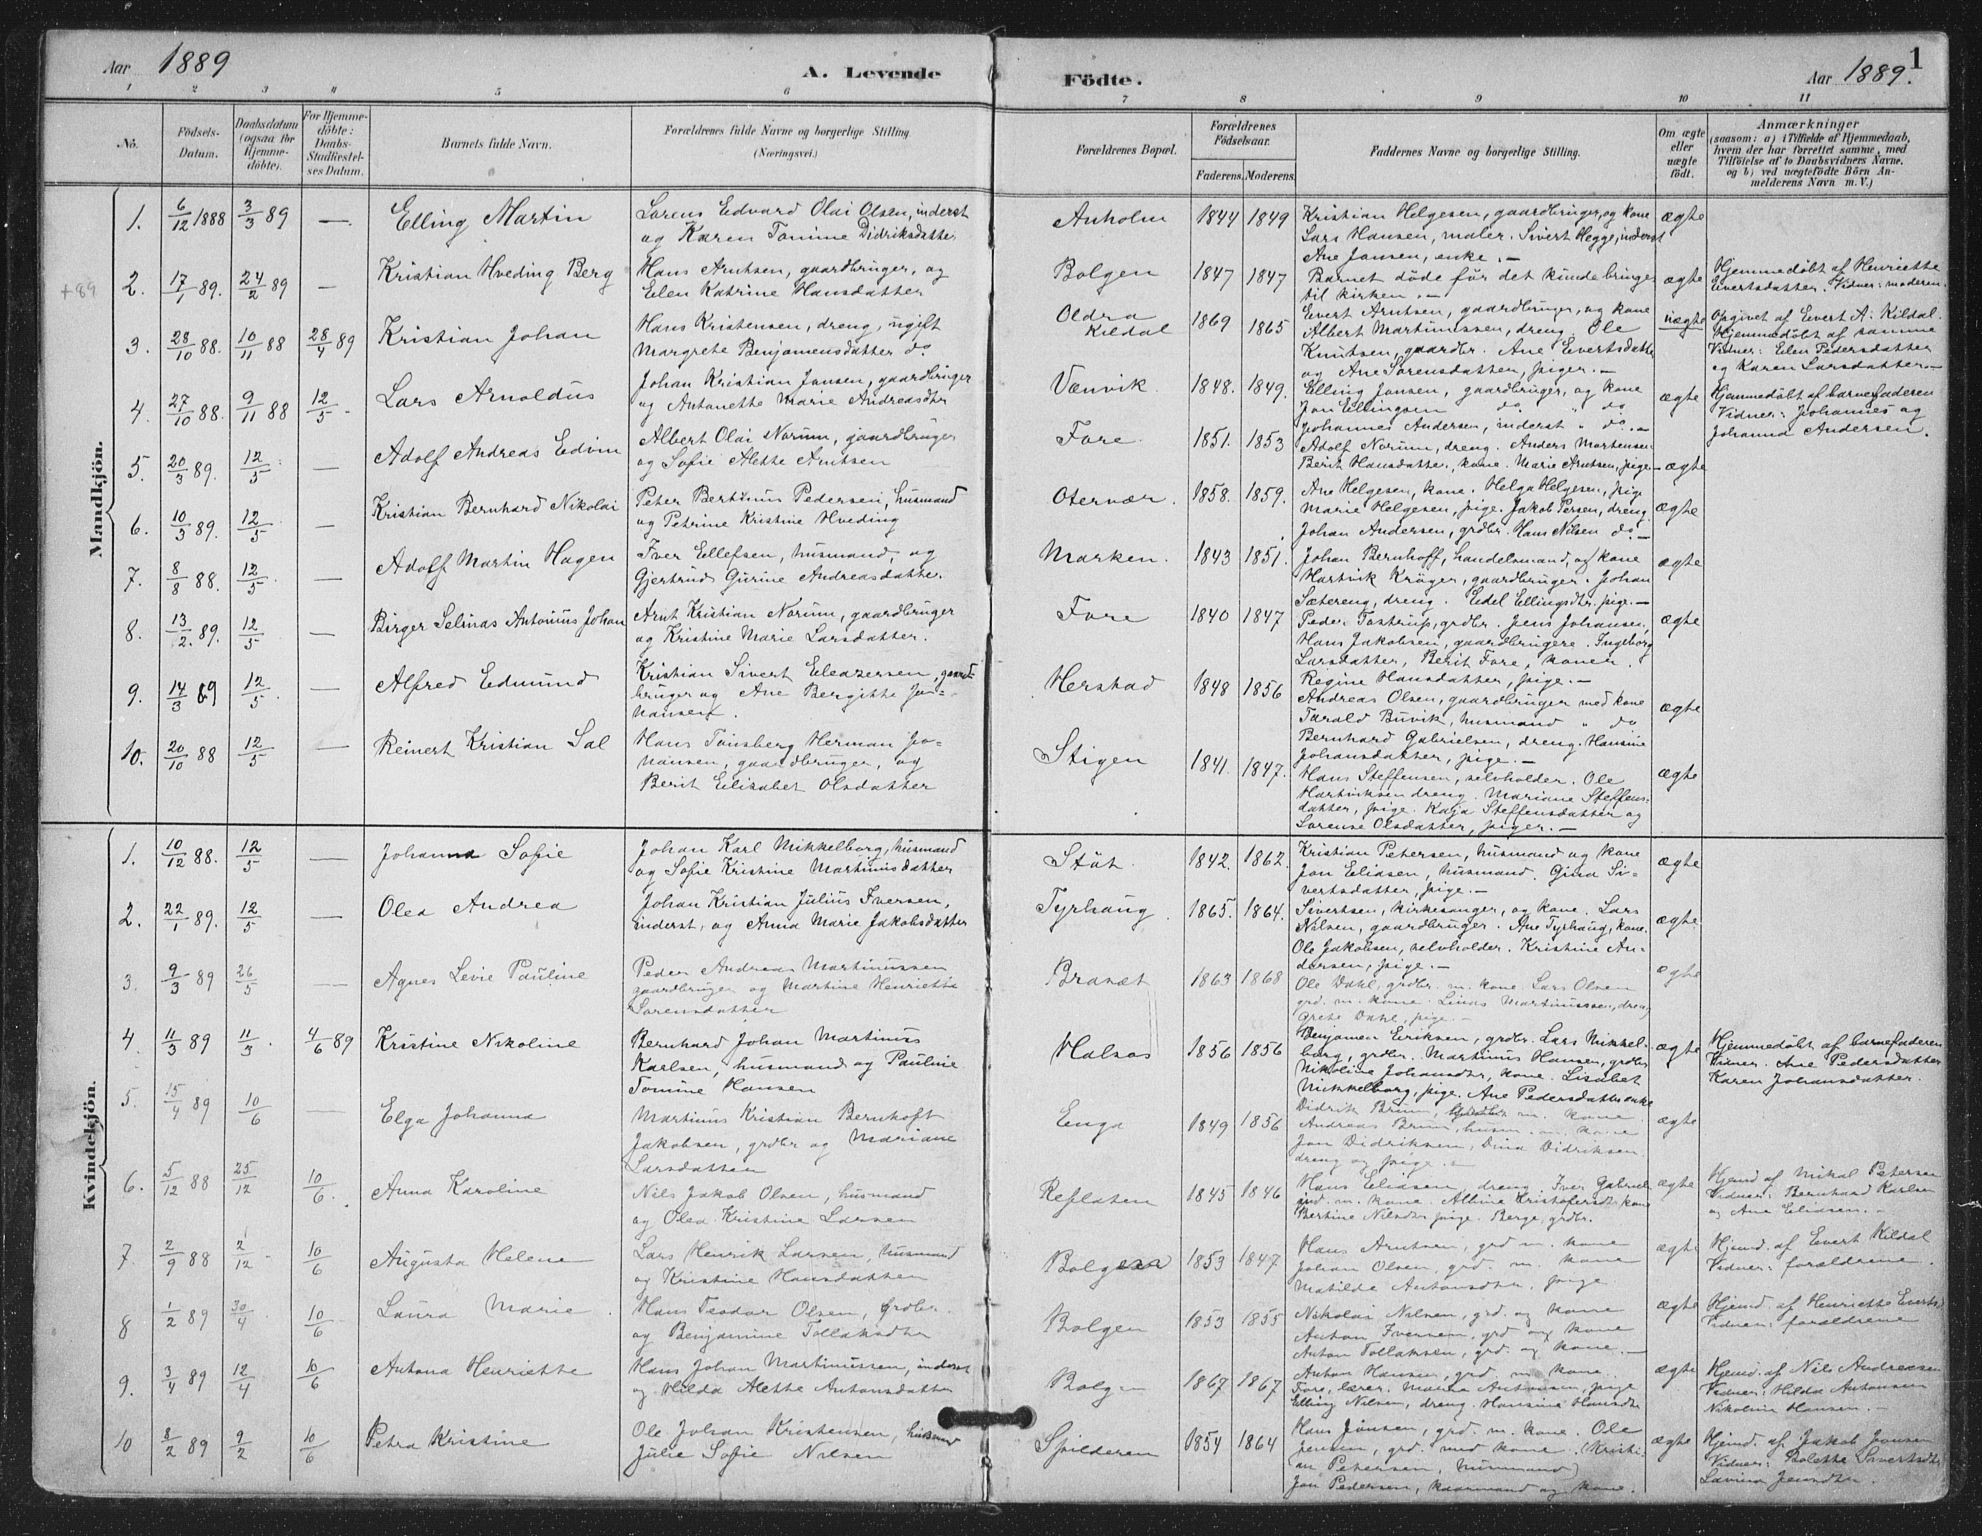 Aar 1889
A. Levende
Født​e.
Aar 1889.
1
1 2 3 4 5 6 7 8 9 10 11
No.
Fødsels-Datum.
Daabsdatum (ogsaa for Hjemmedøbte).
For Hjemmedøbte: Daabs-Stadfæstelses Datum.
Barnets fulde Navn.
Forældrenes fulde Navne og borgerlige Stilling (Næringsvei.)
Forældrenes Bopæl.
Forældrenes Fødselsaar.
Faderens. Moderens.
Faddernes Navne og borgerlige Stilling.
Om ægte eller uægte født.
Anmærkninger
(saasom: a) i Tilfælde af Hjemmedaab,
hvem der har forrettet samme, med
Tilføielse af to Daabsvidners Navne.
og b) ved uægtefødte Børn An-
melderens Navn m. V.)
Mandkjøn.
1. 6/12 1888 3/3 89 — Elling Martin
Sorens Edvard Olai Olsen, inderst
og Karen Tomine Didriksdatter
Anholm 1844 1849
Kristian Helgesen, gaardbruger, og kone
Lars Hansen, maler. Sivert Hegge, inderst
Ane Jansen, enke. —
ægte
+89
2. 17/1 89. 24/2 89 — Kristian Hveding Berg
Hans Arntsen, gaardbruger, og
Elen Katrine Hansdatter
Bolgen 1847 1847
Barnet døde før det kunde bringes
til kirken. —
ægte
Hjemmedøbt af Henriette
Evertsdatter. Vidner: moderen.
3. 28/10 88. 10/11 88 28/4 89 Kristian Johan
Hans Kristensen, dreng, ugift
Margrete Benjamensdatter do
Oldra
Kildal 1869 1865
Evert Arntsen, gaardbruger, og kone
Albert Martinussen, dreng. Ole
Knutsen, gaardbr. Ane Evertsdatter
og Ane Sørensdatter, piger. —
uægte
Opgivet af Evert A. Kildal.
Hjemmedøbt af samme
Vidner: Elen Pedersdatter
og Karen Larsdatter. —
4. 27/10 88. 9/11 88 12/5 Lars Arnoldus
Johan Kristian Jansen, gaardbruger
og Antonette Marie Andreasdtr
Vænvik 1848. 1849.
Elling Jansen, gaardbruger, og kone
Jon Ellingsen do " do
Johannes Andersen, inderst " do. —
ægte
Hjemmedøbt af barnefaderen
Vidner: Johannes og
Johanna Andersen.
5. 20/3 89. 12/5 — Adolf Andreas Edvin
Albert Olai Norum, gaardbruger
og Sofie Alette Arntsen
Fore. 1851. 1853
Adolf Norum, dreng. Anders Mortensen
Berit Hansdatter, kone. Marie Arntsen, pige —
ægte
6. 10/3 89. 12/5 — Kristian Bernhard Nikolai
Peter Bertinus Pedersen, husmand
og Petrine Kristine Hveding
Otervær. 1858. 1859.
Ane Helgesen, kone. Helga Helgesen, pige
Marie Helgesen, pige. Jakob Persen, dreng.
Johan Andersen, grdbr. Hans Nilsen do. —
ægte
7. 8/8 88. 12/5 — Adolf Martin Hagen
Iver Ellefsen, husmand, og
Gjertrud Gurine Andreasdatter.
Marken. 1843 1851.
Johan Bernhoff, handelsmand, og kone
Hartvik Krøger, gaardbruger. Johan
Sætereng, dreng. Edel Ellingsdtr. pige. —
ægte
8. 13/2 89. 12/5 — Birger Selinas Antonius Johan
Arnt Kristian Norum, gaardbruger
og Kristine Marie Larsdatter.
Fore 1840 1847
Peder Fostrup, grdbr. Jens Johansen,
Hans Jakobsen, gaardbrugere. Ingeborg
Larsdatter, Berit Fore, koner.
Regine Hansdatter, pige. —
ægte
9. 14/3 89 12/5 — Alfred Edmund
Kristian Sivert Eleazersen, gaard-
bruger og Ane Bergitte Jo-
hansen.
Herstad 1848 1856
Andreas Olsen, gaardbruger med kone
Tarald Buvik, husmand " do
Bernhard Gabrielsen, dreng. Hansine
Johansdatter, pige. —
ægte
10. 20/10 88 12/5 — Reinert Kristian Sal
Hans Tønsberg Herman Jo-
hansen, gaardbruger, og
Berit Elisabet Olsdatter
Stigen 1841. 1847.
Hans Steffensen, selvholder. Ole
Hartviksen dreng. Mariane Steffens-
datter, pige. Kaja Steffensdatter og
Sørense Olsdatter, piger. —
ægte
Kvindekjøn.
1. 10/12 88. 12/5 — Johanna Sofie
Johan Karl Mikkelborg, husmand
og Sofie Kristine Martinusdatter
Støt. 1842. 1862.
Kristian Petersen, husmand og kone
Jon Eliasen, husmand. Gina Si-
vertsdatter, pige. —
ægte
2. 22/1 89. 12/5 — Olea Andrea
Johan Kristian Julius Iversen,
inderst, og Anna Marie Jakobsdatter
Tyrhaug. 1865. 1864.
Sivertsen, kirkesanger, og kone. Lars
Nilsen, gaardbruger. Ane Tyrhaug, kone.
Ole Jakobsen, selvholder. Kristine An-
dersen, pige. —
ægte
3. 9/3 89 26/5 — Agnes Levie Pauline
Peder Andreas Martinussen
gaardbruger og Martine Henriette
Sørensdatter
Brasæt 1863 1868
Ole Dahl, grdbr. m. kone. Lars Olsen
grd. m. kone. Linas Martinussen, dreng
Grete Dahl, pige. —
ægte
4. 11/3 89 11/3 4/6 89 Kristine Nikoline
Bernhard Johan Martinus
Karlsen, husmand og Pauline
Tomine Hansen
Halsos 1856 1856
Benjamen Eriksen, grdbr. Lars Mikkel-
borg, grdbr. Martinus Hansen, grdbr
Nikoline Johansdtr, kone. Lisabet
Mikkelborg, pige. Ane Pedersdatter enke
ægte
Hjemmedøbt af barnefaderen
Vidner: Ane Pedersdatter
Karen Johansdatter.
5. 15/4 89 10/6 — Elga Johanna
Martinus Kristian Bernhoft
Jakobsen, grdbr og Mariane
Larsdatter
Enga 1849 1856
Didrik Brun, m. kone
Andreas Brun, husm. m. kone
Jon Didriksen, Dina Didriksen
dreng og pige. —
ægte
6. 5/12 88 25/12 10/6. Anna Karoline
Nils Jakob Olsen, husmand
og Olea Kristine Larsen
Resflaten 1845 1846
Hans Eliasen, dreng. Iver Gabriel
ind. m. kone. Albine Kristofersdtr kone
Bertine Nilsdtr pige. Berge, grdbr.
ægte
Hjemd af Mikal Petersen
Vidner: Bernhard Karlsen
og Ane Eliasen. —
7. 2/9 88 2/12 10/6 Augusta Helene
Lars Henrik Larsen, husmand
og Kristine Hansdatter
Bolgen 1853 1847
Hans Arntsen, grd m. kone
Johan Olsen, grd. m. kone
Matilde Antonsdtr. pige
ægte
Hjemd. af Evert Kildal
Vidner: forældrene.
8 1/2 89 30/4 10/6 Laura Marie
Hans Teodor Olsen, Grdbr.
og Benjamine Tollaksdtr
Bolgen 1853 1855
Nikolai Nilsen, grd. og kone
Anton Iversen, grd og kone
Anton Tollaksen, grd. og kone. —
ægte
Hjemd. af Henriette Evertsd.
Vidner: forældrene
9. 3/4 89 12/4 10/6 Antona Henriette
Hans Johan Martinussen, inderst
og Hilda Alette Antonsdatter
Bolgen 1867 1867
Anton Hansen, grd m. kone.
Fore, lærer. Marie Antonsen, pige
Elling Nilsen, dreng. Hansine Hansdtr
ægte
Hjemd. af Nils Andreasen
Vidner: Hilda Antonsen
Nikoline Hansen. —
10 8/2 89 9/2 10/6 Petra Kristine
Ole Johan Kristensen, husmand
Julie Sofie Nilsen
Spilderen 1854 1864
Hans Jonsen, grd. m. kone. Ole
Jensen, grd. med kone. (Kristi-
an Petersen, husmand)
Jon Pedersen, kaarmand og kone.
ægte
Hjemd. af Jakob Jonsen
Vidner: Bolette Sivertsdtr
Lavina Jensdtr.